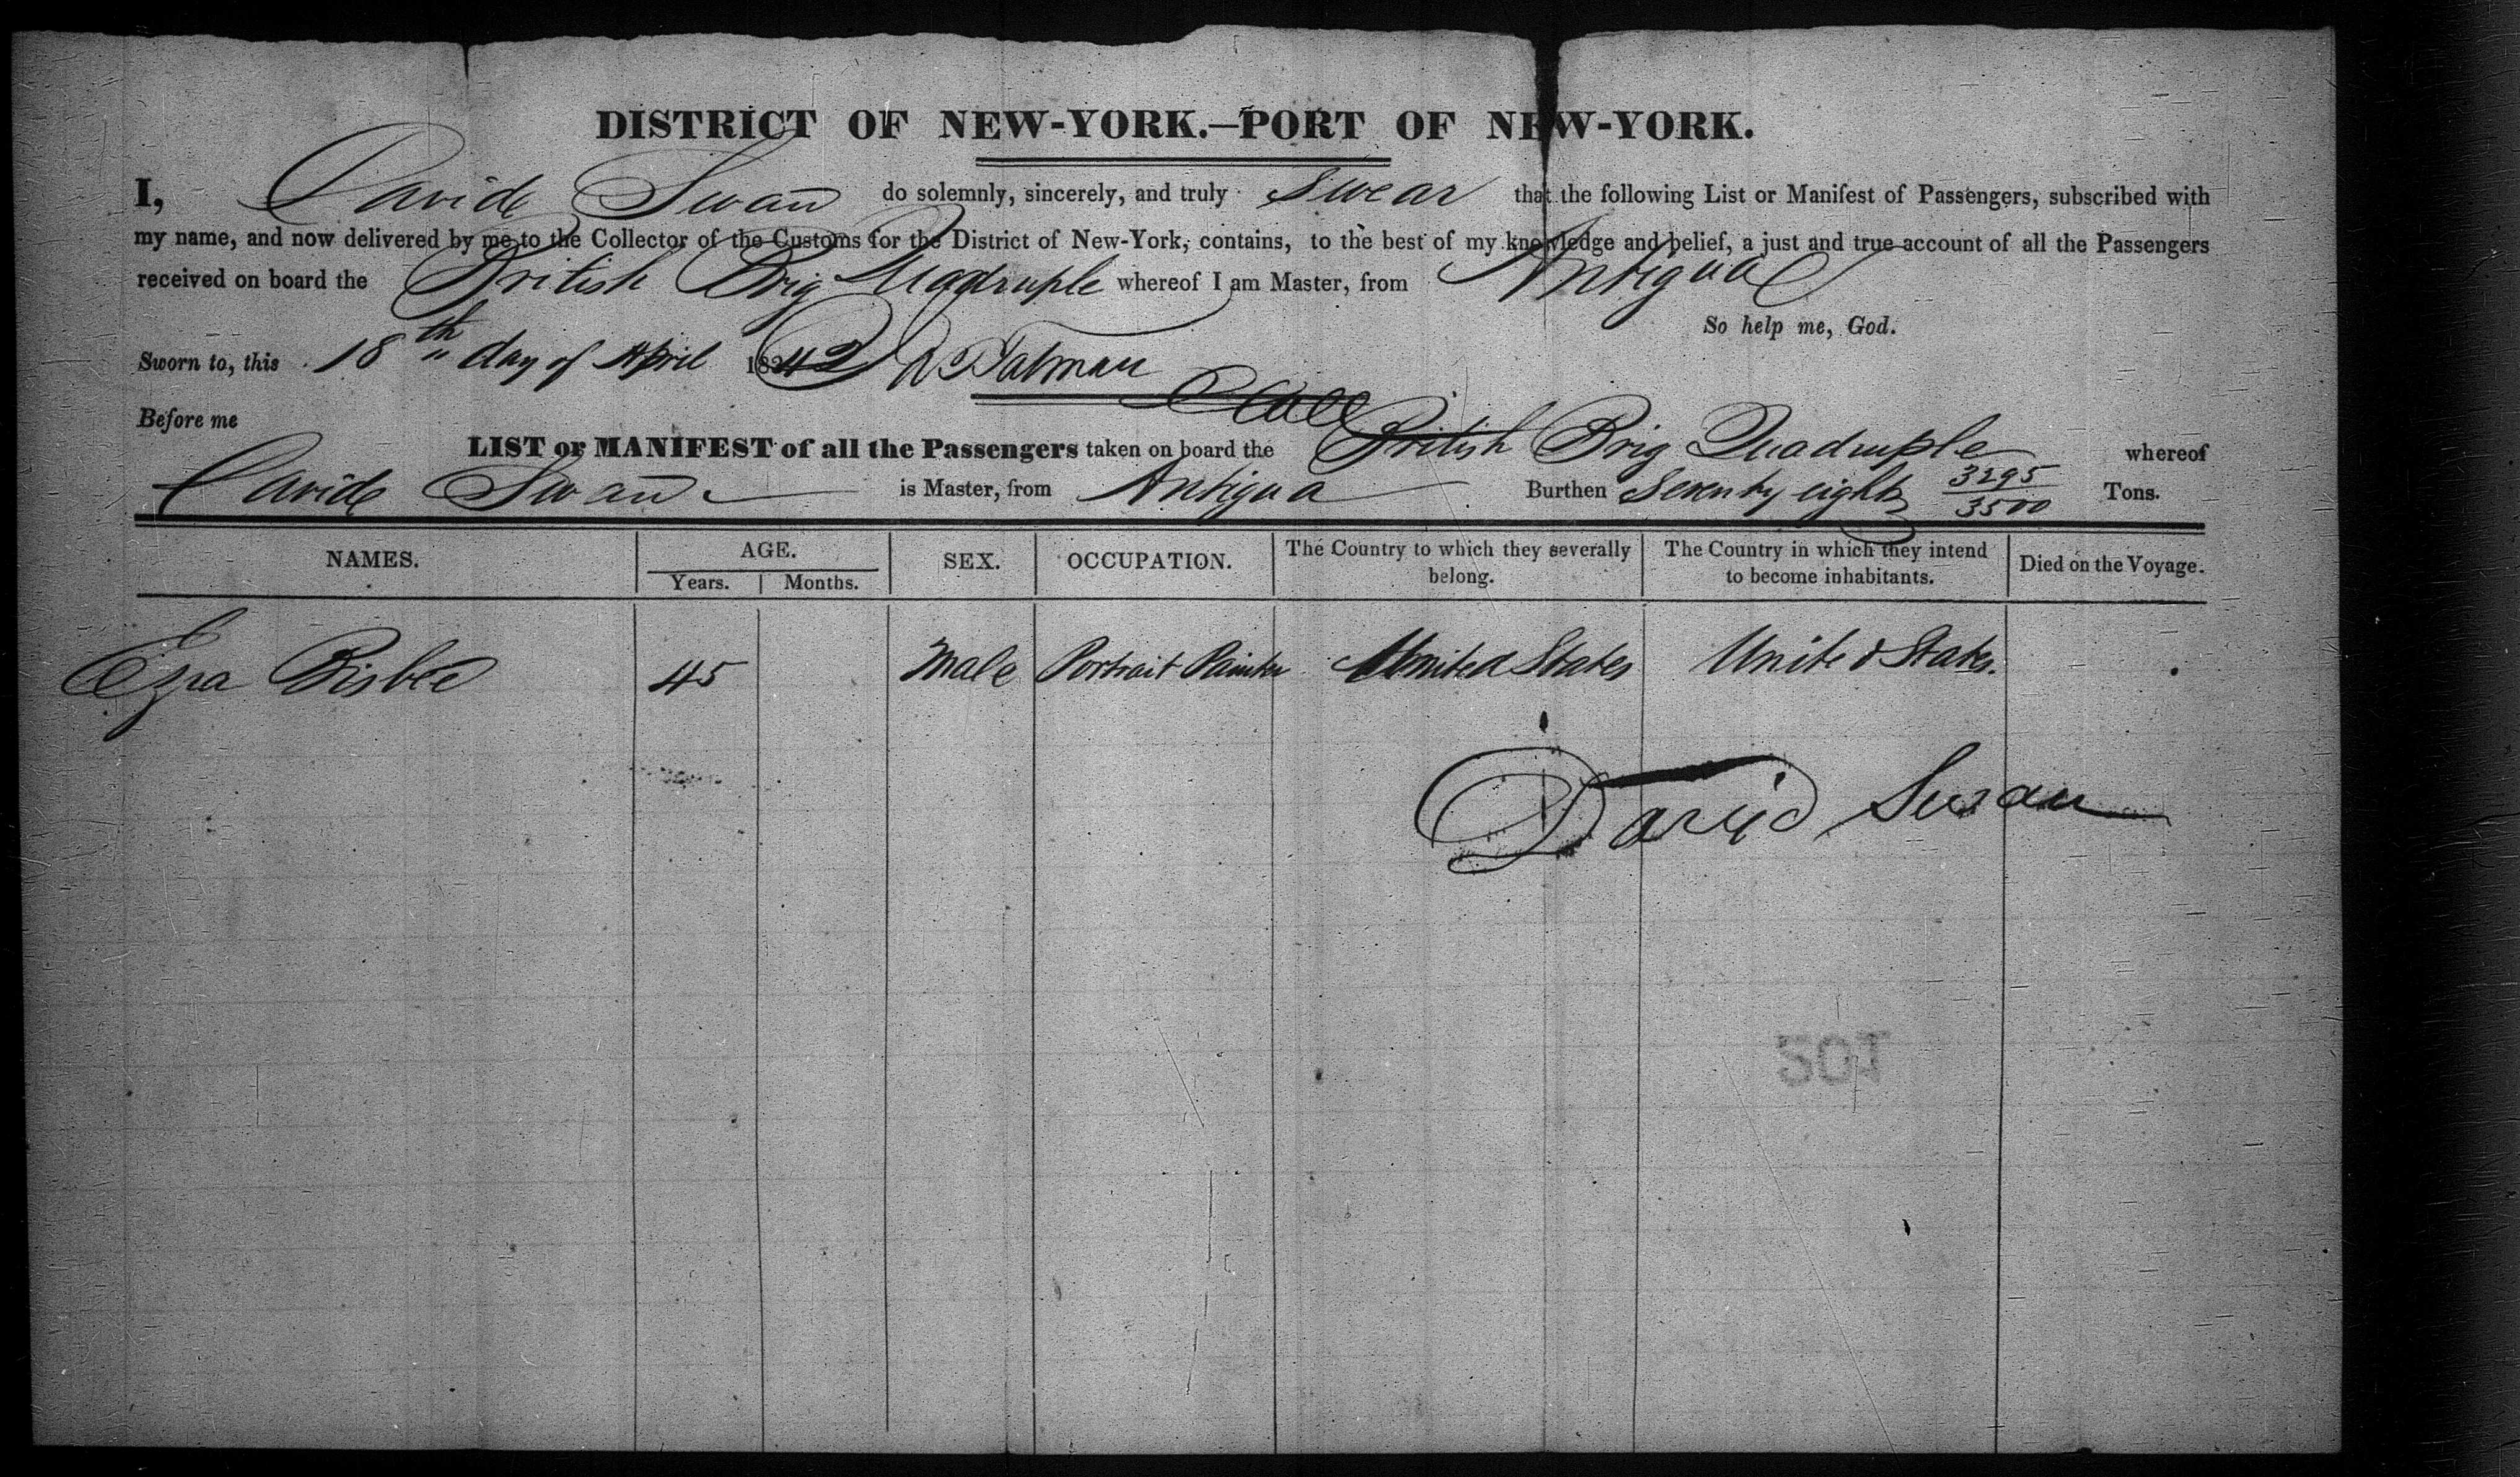 DISTRICT OF NEW-YORK.—PORT OF NEW-YORK.
I, David Swan do solemnly, sincerely, and truly Swear that the following List or Manifest of Passengers, subscribed with
my name, and now delivered by me to the Collector of the Customs for the District of New-York, contains, to the best of my knowledge and belief, a just and true account of all the Passengers
received on board the British Brig Quadruple whereof I am Master, from Antigua
So help me, God.
Sworn to, this 18th day of April 1842
Before me
LIST or MANIFEST of all the Passengers taken on board the British Brig Quadruple whereof
David Swan is Master, from Antigua Burthen Seventy eight 3295/3500 Tons.
NAMES. AGE. SEX. OCCUPATION. The Country to which they severally belong. The Country in which they intend to become inhabitants. Died on the Voyage.
Years. Months.
Ezra Bisbee 45 Male Portrait Painter United States United States.
David Swan
201